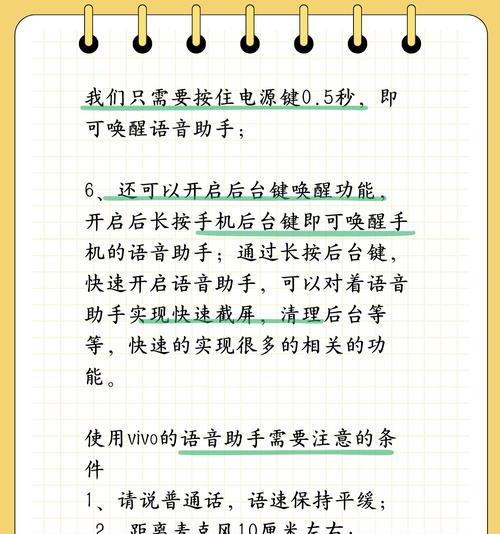 我们只需要按住电源键0.5秒，即
可唤醒语音助手；
6、还可以开启后台键唤醒功能，
开启后长按手机后台键即可唤醒手
机的语音助手；通过长按后台键，
快速开启语音助手，可以对着语音
助手实现快速截屏，清理后台等
等，快速的实现很多的相关的功
能。
使用vivo的语音助手需要注意的条
件
1、请说普通话，语速保持平缓；
2、距离麦克风10厘米左右；